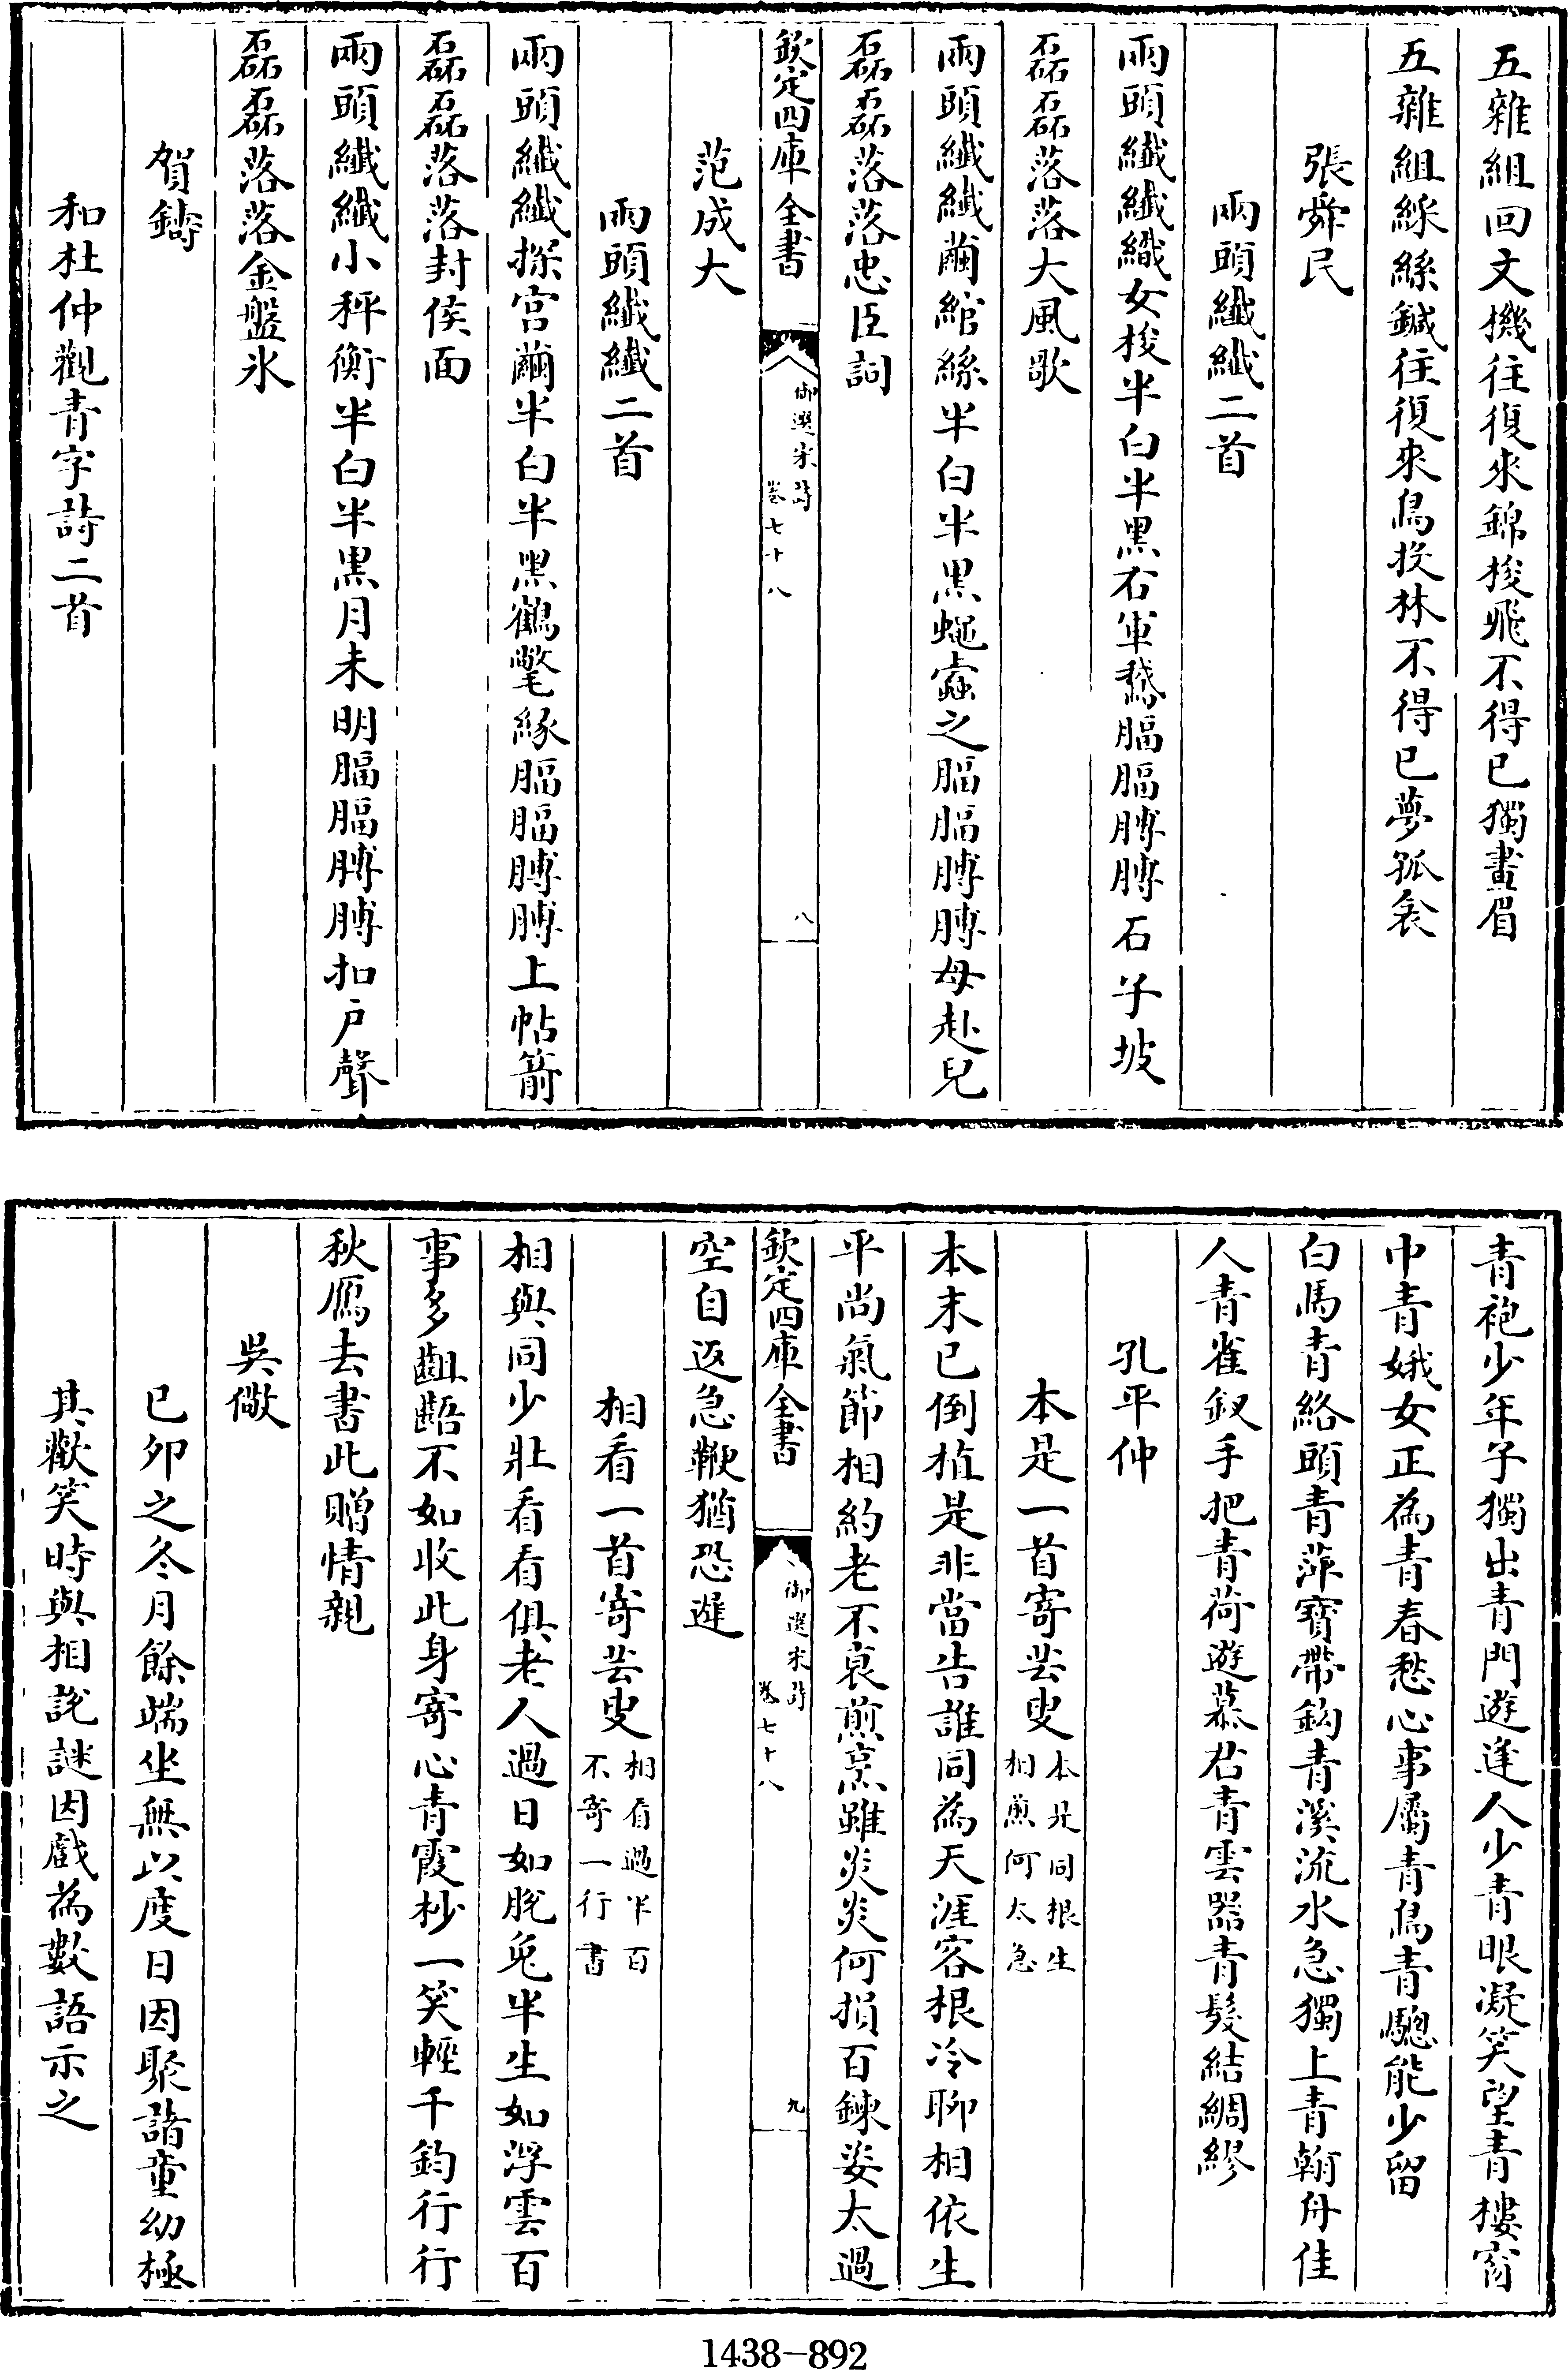 五雜組回文機往復來錦梭飛不得已獨畫眉
五雜組綵絲鍼往復來鳥投林不得已夢孤衾
張舜民
兩頭纖纖二首
兩頭纖纖織女梭半白半黑右軍鵞腷腷膊膊石子坡
磊磊落落大風歌
兩頭纖纖繭綰絲半白半黑蠅蠹之腷腷膊膊母赴兒
磊磊落落忠臣詞
欽定四庫全書
御選宋詩
卷七十八
八
范成大
兩頭纖纖二首
兩頭纖纖探官繭半白半黑鶴氅緣腷腷膊膊上帖箭
磊磊落落封侯面
兩頭纖纖小秤衡半白半黑月未明腷腷膊膊扣户聲
磊磊落落金盤氷
賀鑄
和杜仲觀青字詩二首
青袍少年子獨出青門遊逢人少青眼凝笑望青樓窗
中青娥女正為青春愁心事屬青鳥青驄能少留
白馬青絡頭青萍寶帶鈎青溪流水急獨上青翰舟佳
人青雀釵手把青荷遊慕君青雲器青髮結綢繆
孔平仲
本是一首寄芸叟
本是同根生
相煎何太急
本末已倒植是非當告誰同為天涯客根冷聊相依生
平尚氣節相約老不衰煎烹雖炎炎何損百鍊姿太過
欽定四庫全書
御選宋詩
卷七十八
九
空自返急鞭猶恐遲
相看一首寄芸叟
相看過半百
不寄一行書
相與同少壯看看俱老人過日如脫兔半生如浮雲百
事多齟齬不如收此身寄心青霞杪一笑輕千鈞行行
秋鴈去書此贈情親
吳儆
已夘之冬月餘端坐無以度日因聚諸童幼極
其歡笑時與相説謎因戲為數語示之
1438-892